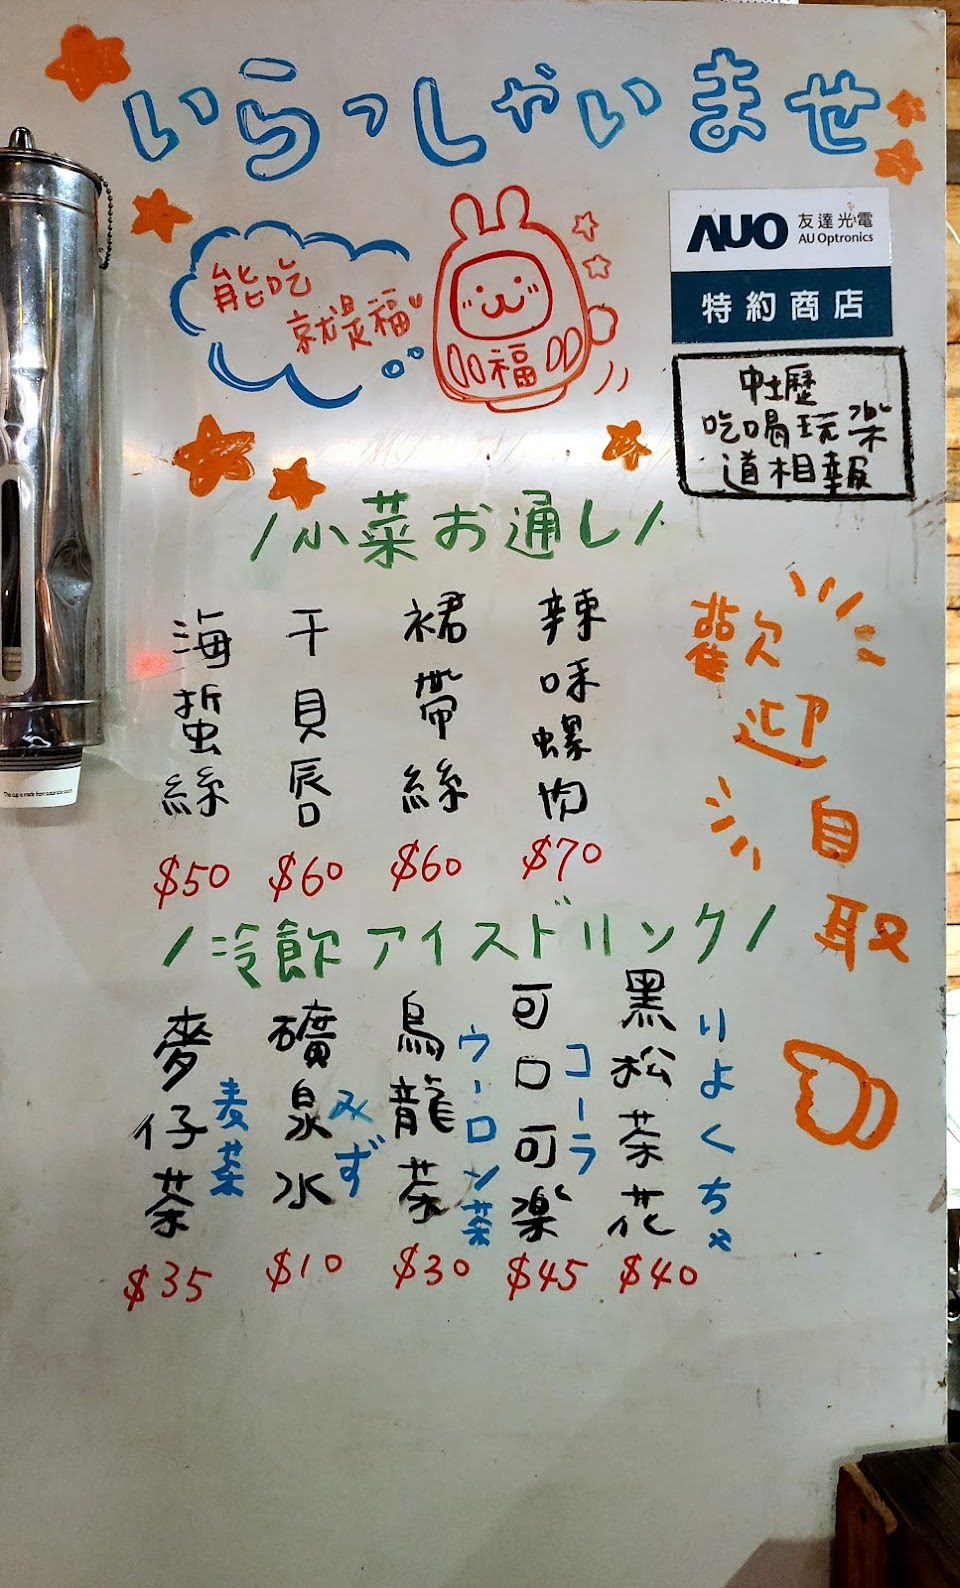 いらっしゃいませ
能吃
就是福
福
AUO 友達光電
AU Optronics
特約商店
中壢
吃喝玩楽
道相報
/小菜お通し/
辣味螺肉
$70
裙帶絲
$60
干貝唇
$60
海蜇絲
$50
歡迎自取
/冷飲アイスドリンク/
黑松茶花
りよくちゃ
$40
可口可楽
コーラ
$45
烏龍茶
ウーロン茶
$30
礦泉水
みず
$10
麥仔茶
麦茶
$35